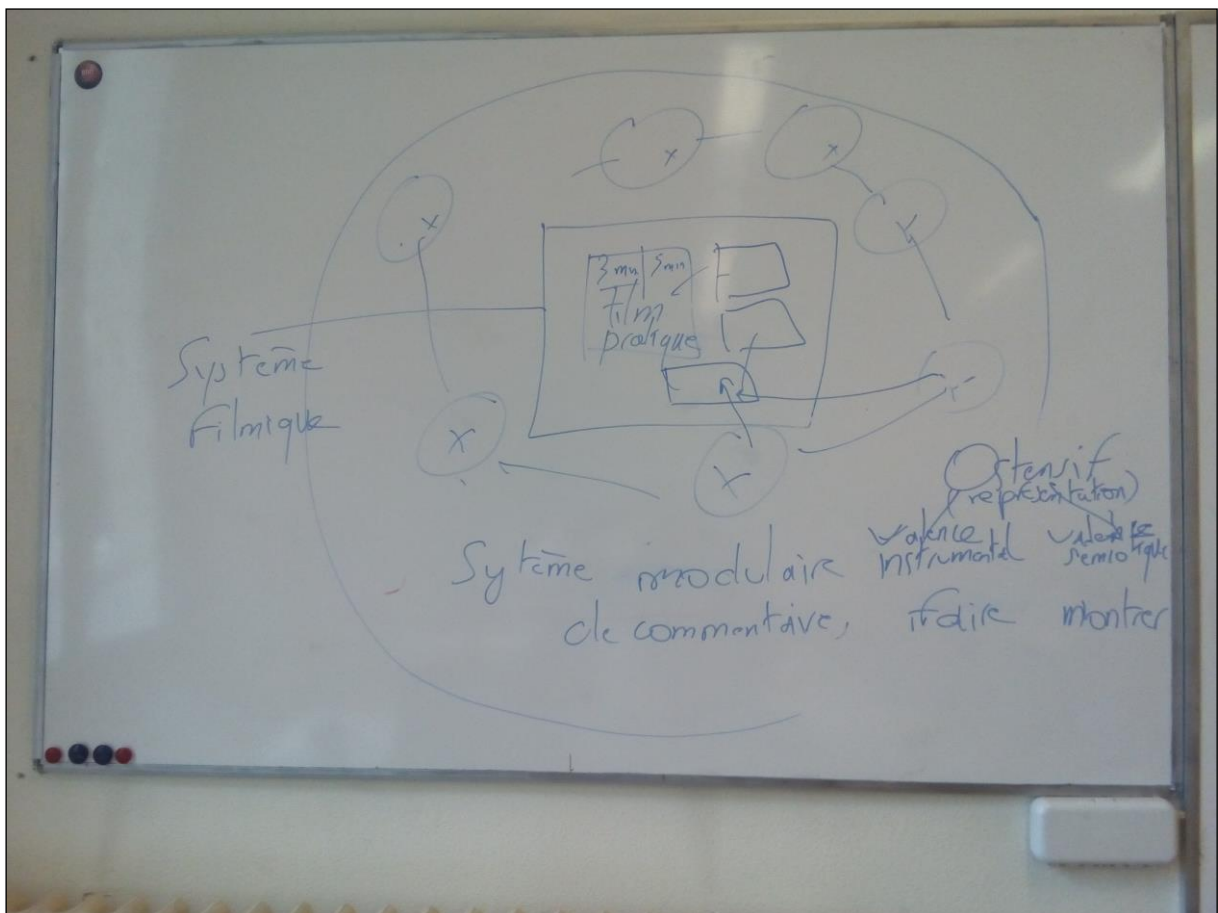 3 min 5 min
Film
pratique
Système
filmique
Ostensif
(représentation)
valence valence
instrumental semiotique
Sytème modulaire
de commentaire, faire montrer